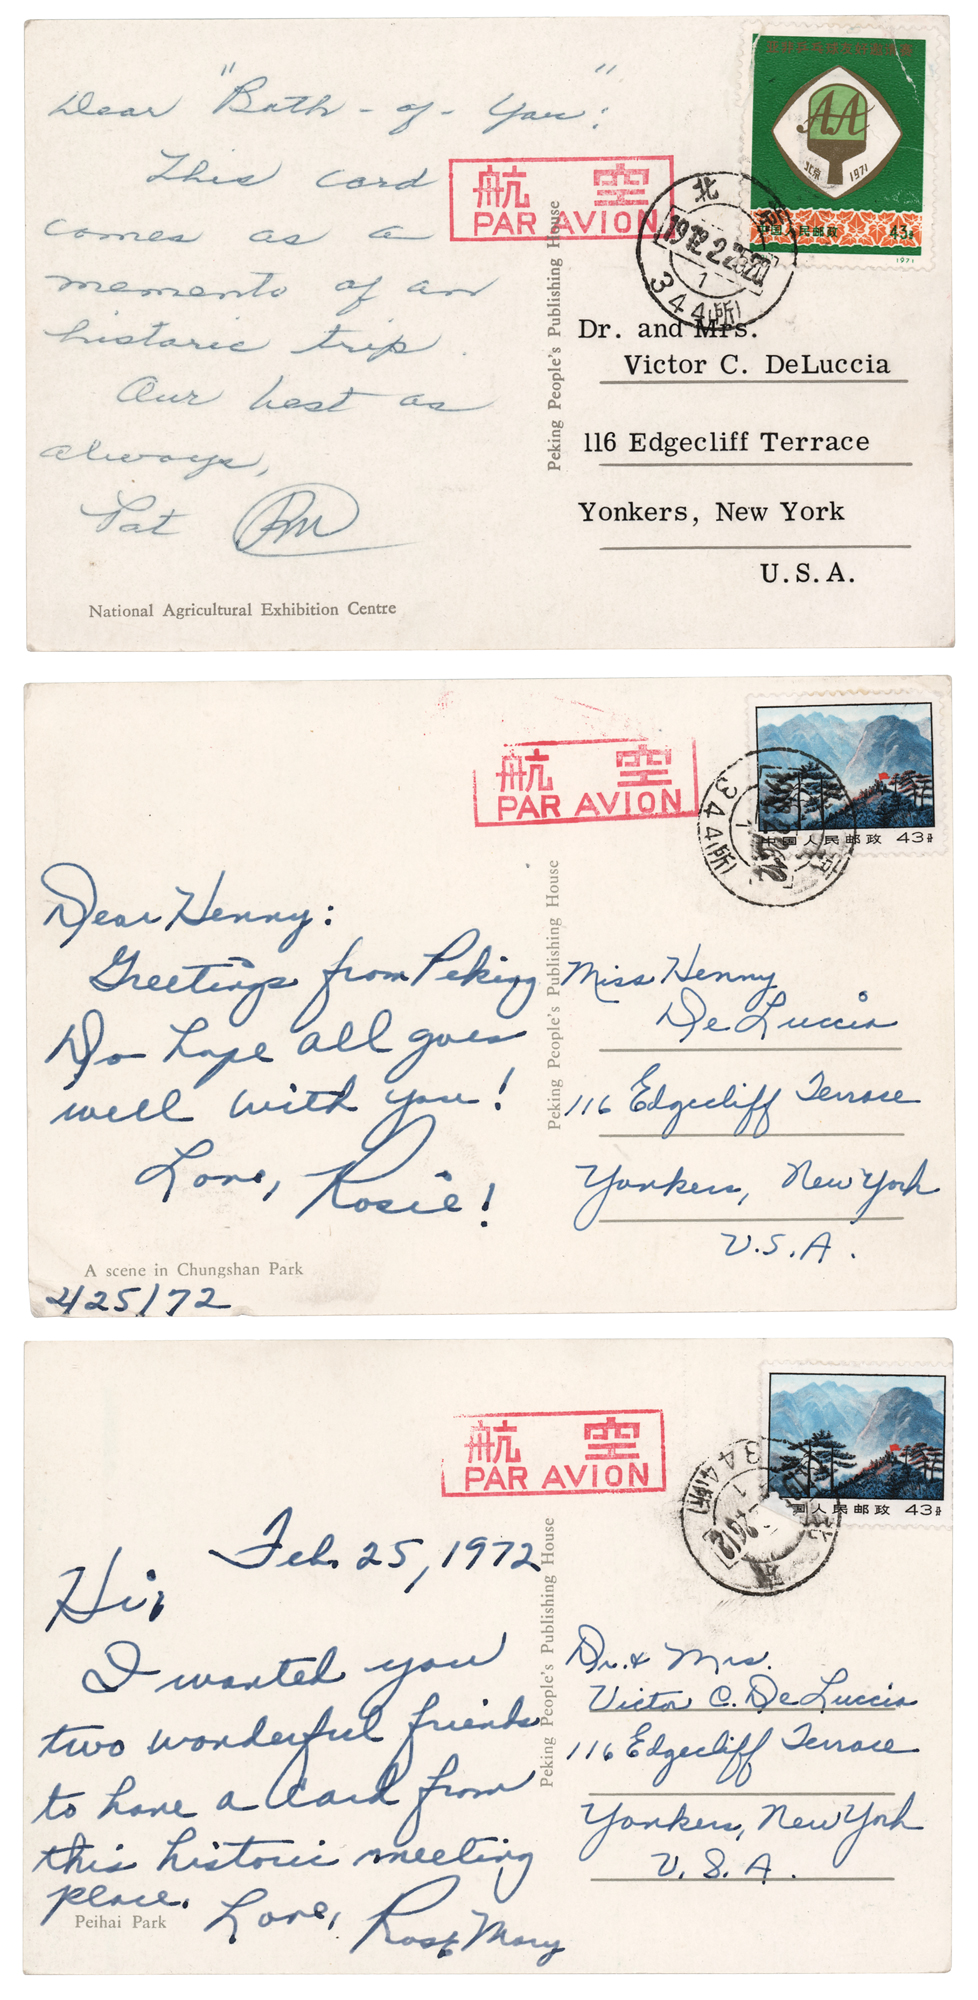 Dear "Both-of-You":
This card
comes as a
memento of an
historic trip.
Our best as
always,
Pat RM
National Agricultural Exhibition Centre
Peking People's Publishing House
航 空
PAR AVION
AA
北京 1971
中国人民邮政 43分
1971
北京
344(所)
1
Dr. and Mrs.
Victor C. DeLuccia
116 Edgecliff Terrace
Yonkers, New York
U.S.A.
Dear Henny:
Greetings from Peking
Do hope all goes
well with you!
Love, Rosie!
A scene in Chungshan Park
2/25/72
Peking People's Publishing House
航 空
PAR AVION
中国人民邮政 43分
344(所)
1
Miss Henny
De Luccia
116 Edgecliff Terrace
Yonkers, New York
U.S.A.
Feb. 25, 1972
Hi,
I wanted you
two wonderful friends
to have a card from
this historic meeting
place.
Love, Rose Mary
Peihai Park
Peking People's Publishing House
航 空
PAR AVION
国人民邮政 43分
344(所)
1
Dr. & Mrs.
Victor C. De Luccia
116 Edgecliff Terrace
Yonkers, New York
U.S.A.